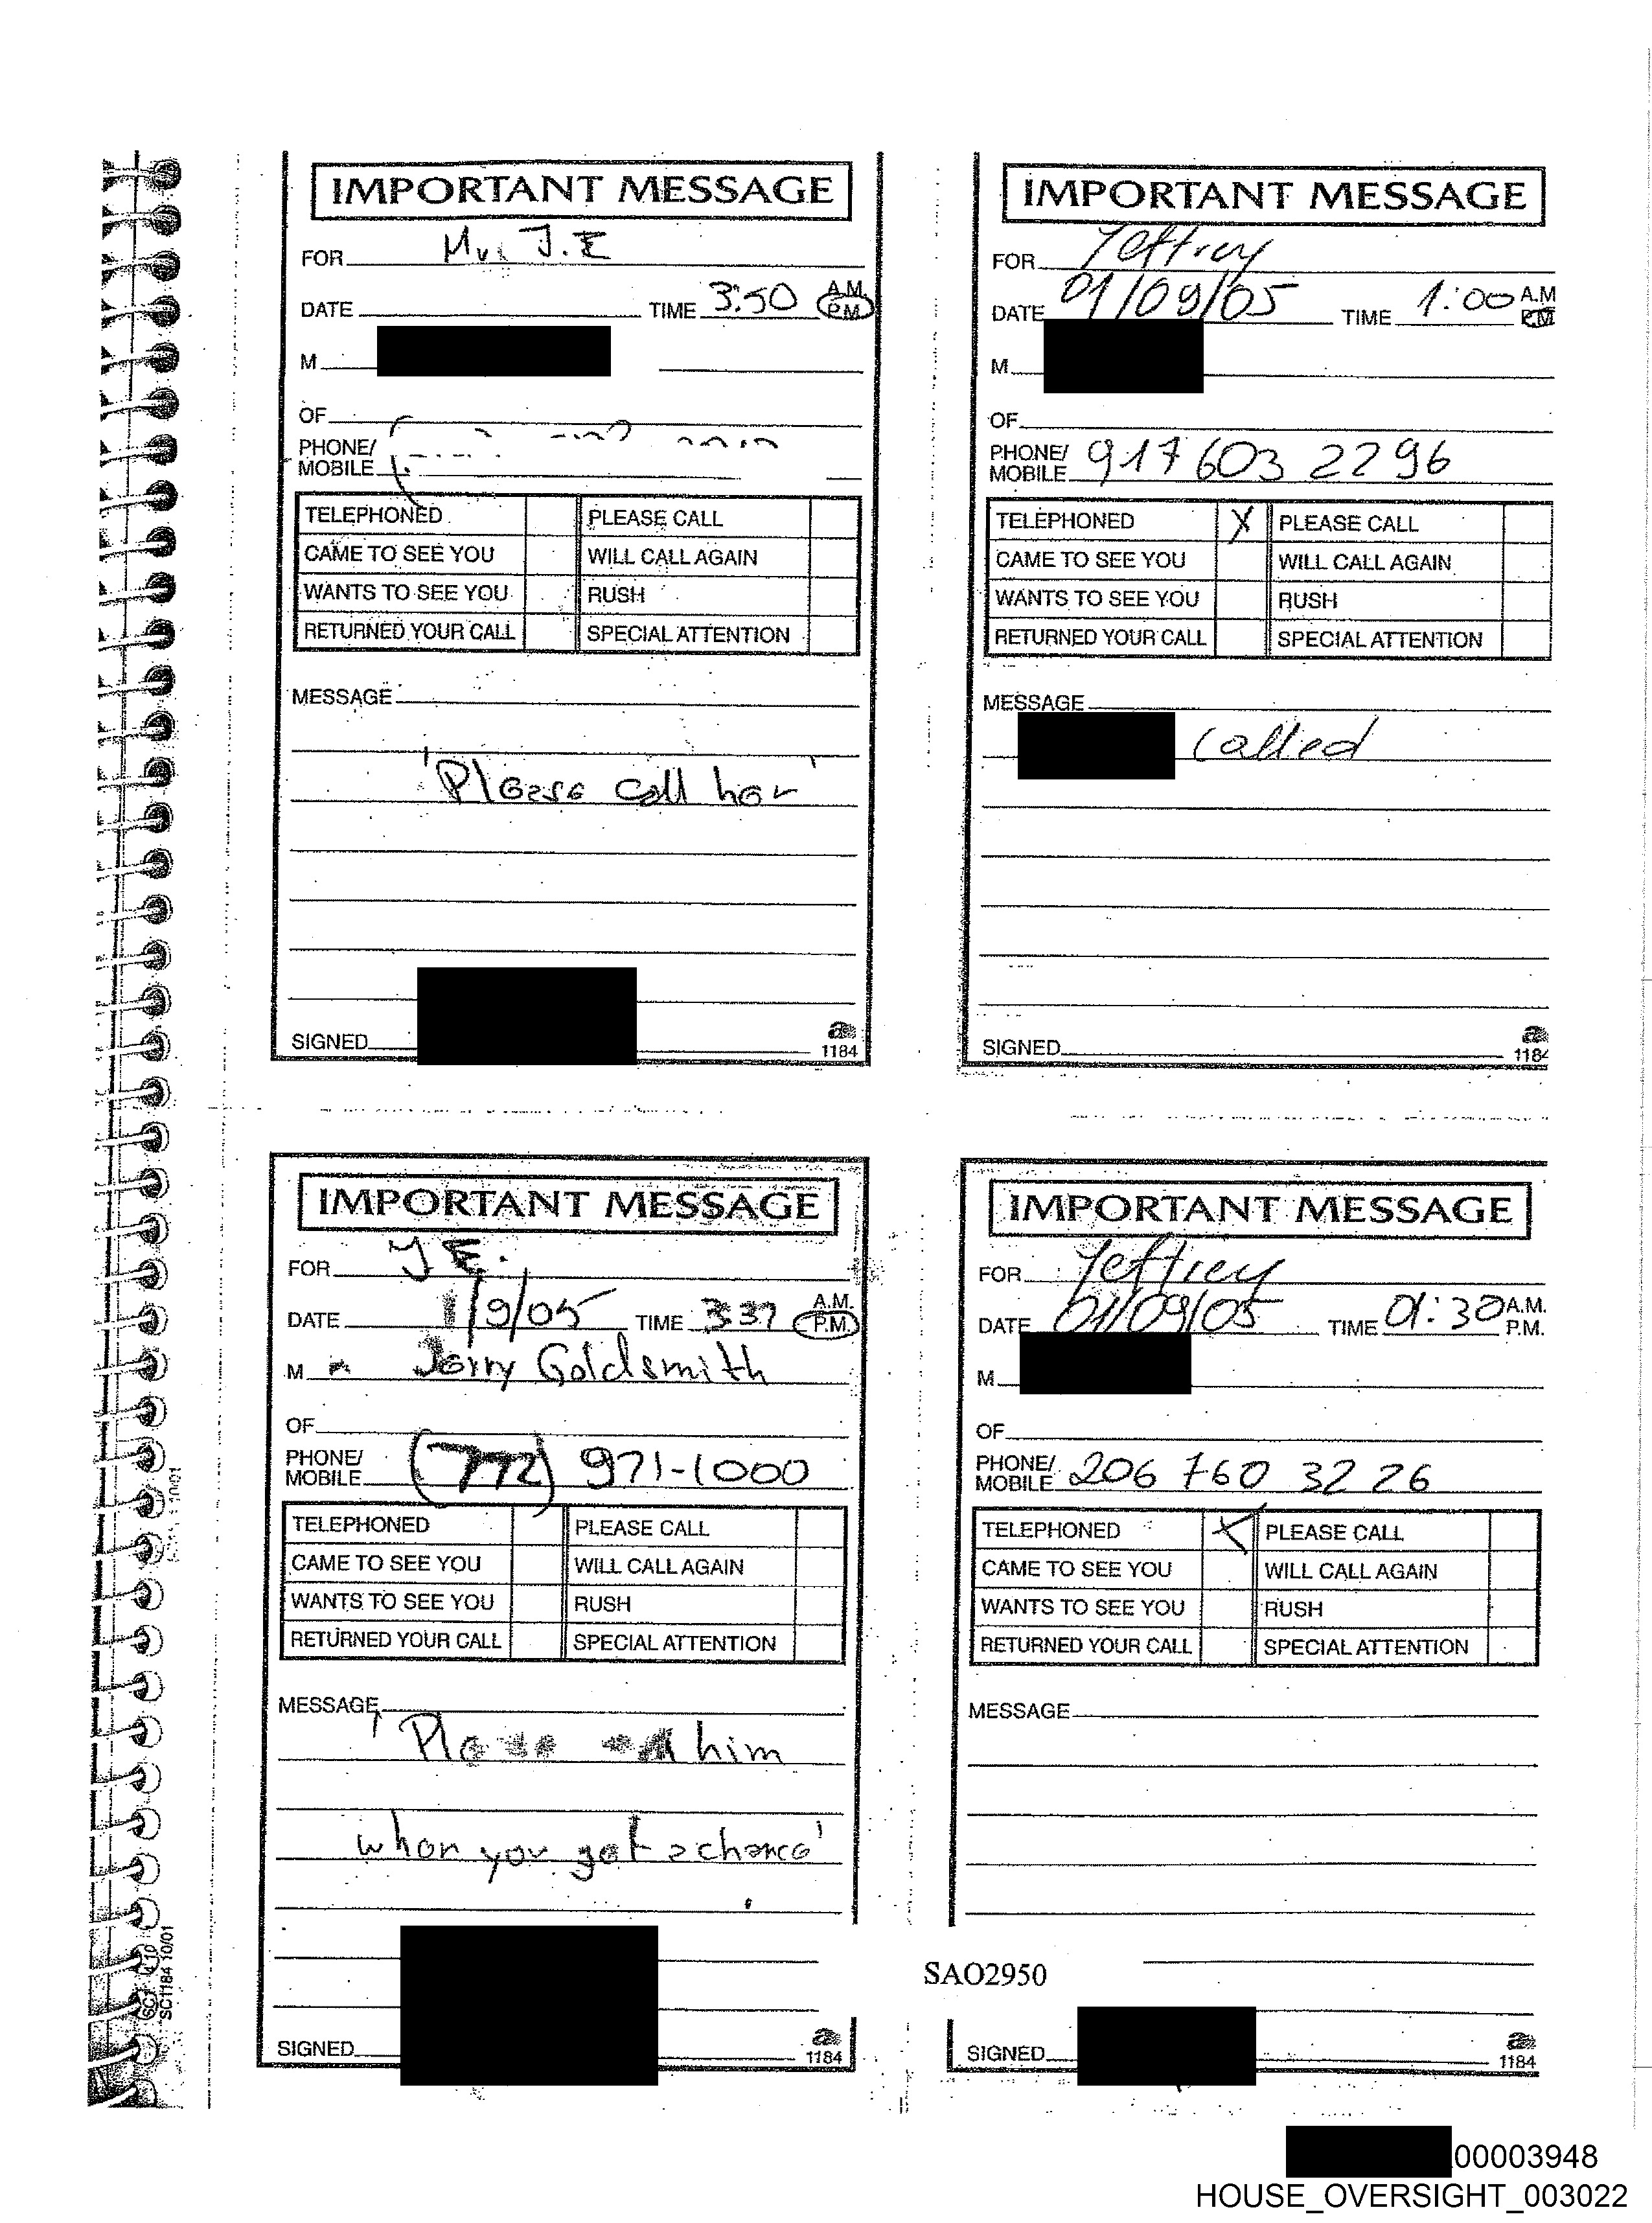 IMPORTANT MESSAGE
FOR Mr. J.E
DATE TIME 3:50 A.M. P.M.
M
OF
PHONE/
MOBILE
TELEPHONED PLEASE CALL
CAME TO SEE YOU WILL CALL AGAIN
WANTS TO SEE YOU RUSH
RETURNED YOUR CALL SPECIAL ATTENTION
MESSAGE
'Please call her'
SIGNED
1184
IMPORTANT MESSAGE
FOR Jeffrey
DATE 01/09/05 TIME 1:00 A.M P.M
M
OF
PHONE/
MOBILE 917 603 2296
TELEPHONED X PLEASE CALL
CAME TO SEE YOU WILL CALL AGAIN
WANTS TO SEE YOU RUSH
RETURNED YOUR CALL SPECIAL ATTENTION
MESSAGE
called
SIGNED
1184
IMPORTANT MESSAGE
FOR J E.
DATE 1/9/05 TIME 3:37 A.M. P.M.
M r Jerry Goldsmith
OF
PHONE/
MOBILE (772) 971-1000
TELEPHONED PLEASE CALL
CAME TO SEE YOU WILL CALL AGAIN
WANTS TO SEE YOU RUSH
RETURNED YOUR CALL SPECIAL ATTENTION
MESSAGE
'Please call him
when you get a chance'
SIGNED
1184
SC1184 10/01
IMPORTANT MESSAGE
FOR Jeffrey
DATE 01/09/05 TIME 01:30 A.M. P.M.
M
OF
PHONE/
MOBILE 206 760 3226
TELEPHONED X PLEASE CALL
CAME TO SEE YOU WILL CALL AGAIN
WANTS TO SEE YOU RUSH
RETURNED YOUR CALL SPECIAL ATTENTION
MESSAGE
SAO2950
SIGNED
1184
00003948
HOUSE_OVERSIGHT_003022